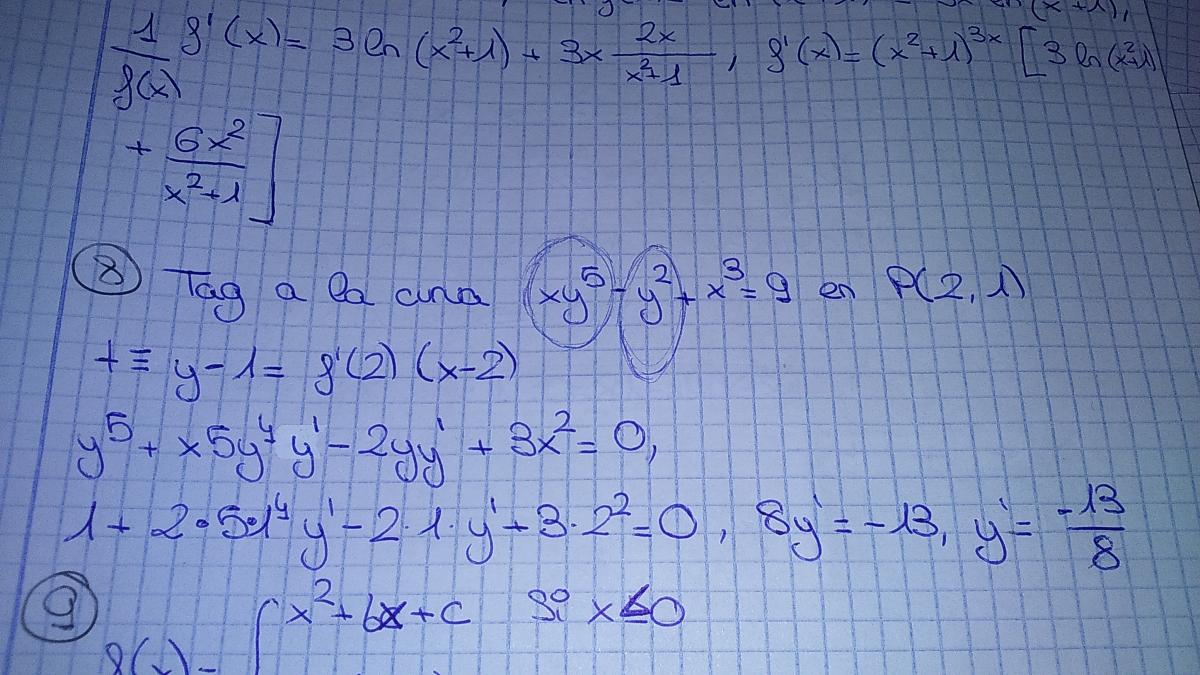 1/f(x) f'(x) = 3 ln(x²+1) + 3x 2x/(x²+1) , f'(x) = (x²+1)^3x [3 ln(x²+1)
+ 6x²/(x²+1)]
8 Tag a la curva xy⁵ - y² + x³ = 9 en P(2,1)
t ≡ y-1 = f'(2) (x-2)
y⁵ + x5y⁴y' - 2yy' + 3x² = 0,
1 + 2·5·1⁴y' - 2·1·y' + 3·2² = 0 , 8y' = -13, y' = -13/8
9 f(x) = { x² + bx + c si x ≤ 0